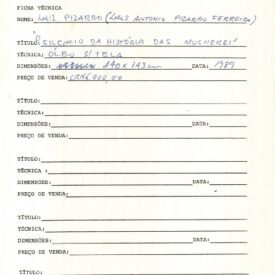 FICHA TÉCNICA
NOME: LUIZ PIZARRO (LUIZ ANTONIO PIZARRO FERREIRA)
TÍTULO: "O SILENCIO DA HISTÓRIA DAS MULHERES"
TÉCNICA: ÓLEO S/TELA
DIMENSÕES: 240 x 143 cm DATA: 1989
PREÇO DE VENDA:
TÍTULO:
TÉCNICA:
DIMENSÕES: DATA:
PREÇO DE VENDA:
TÍTULO:
TÉCNICA :
DIMENSÕES: DATA:
PREÇO DE VENDA:
TÍTULO:
TÉCNICA:
DIMENSÕES: DATA:
PREÇO DE VENDA:
TÍTULO: